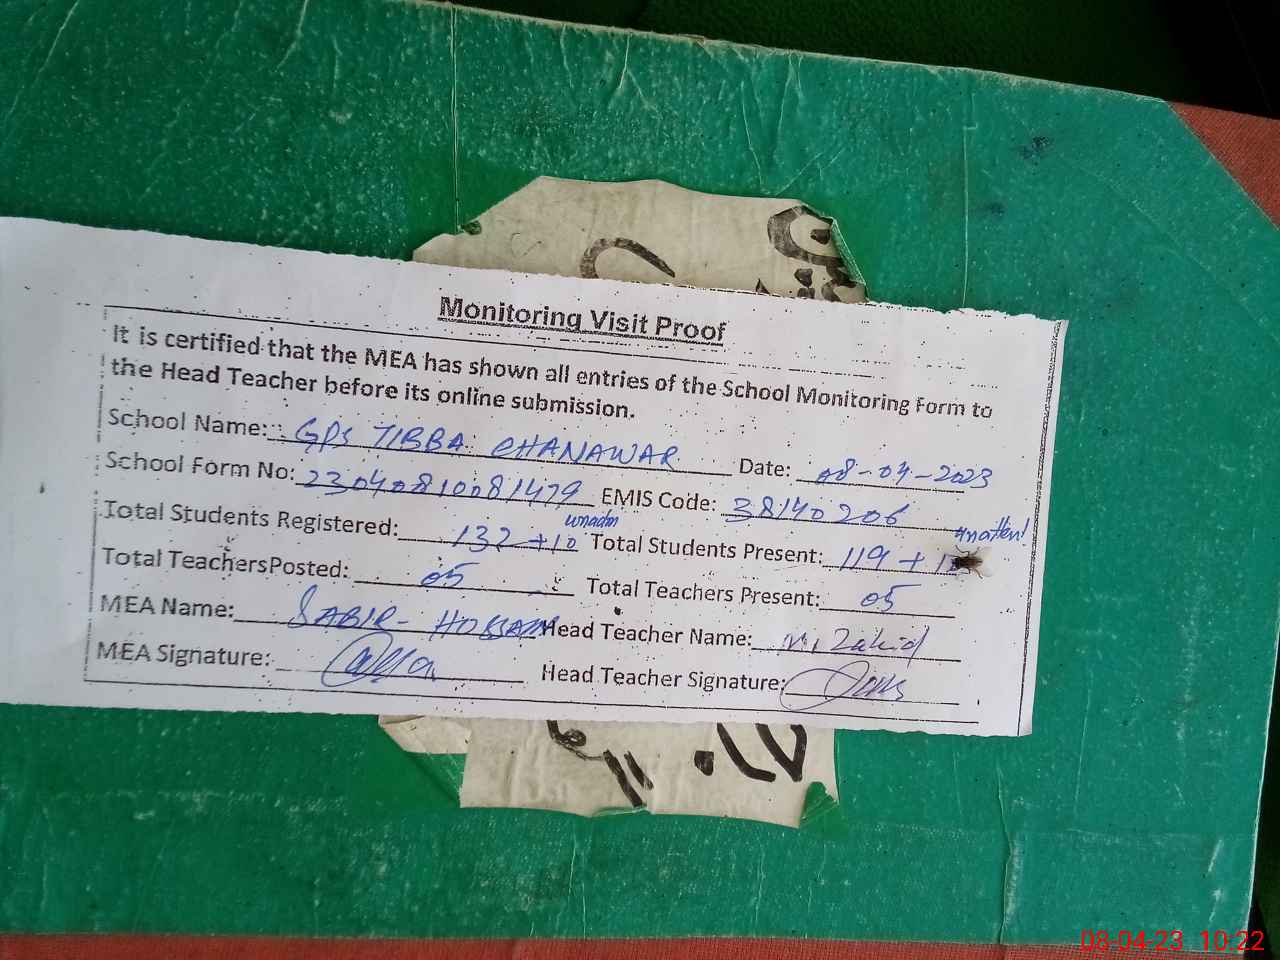 Monitoring Visit Proof
It is certified that the MEA has shown all entries of the School Monitoring Form to
the Head Teacher before its online submission.
School Name: GPS TIBBA CHANAWAR Date: 08-04-2023
School Form No: 23040810081479 EMIS Code: 38140206
Total Students Registered: 132 +10 unadm Total Students Present: 119 +
Total TeachersPosted: 05 Total Teachers Present: 05
MEA Name: SABIR- HUSSAIN Head Teacher Name: M. Zahid
MEA Signature: Head Teacher Signature:
08-04-23 10:22